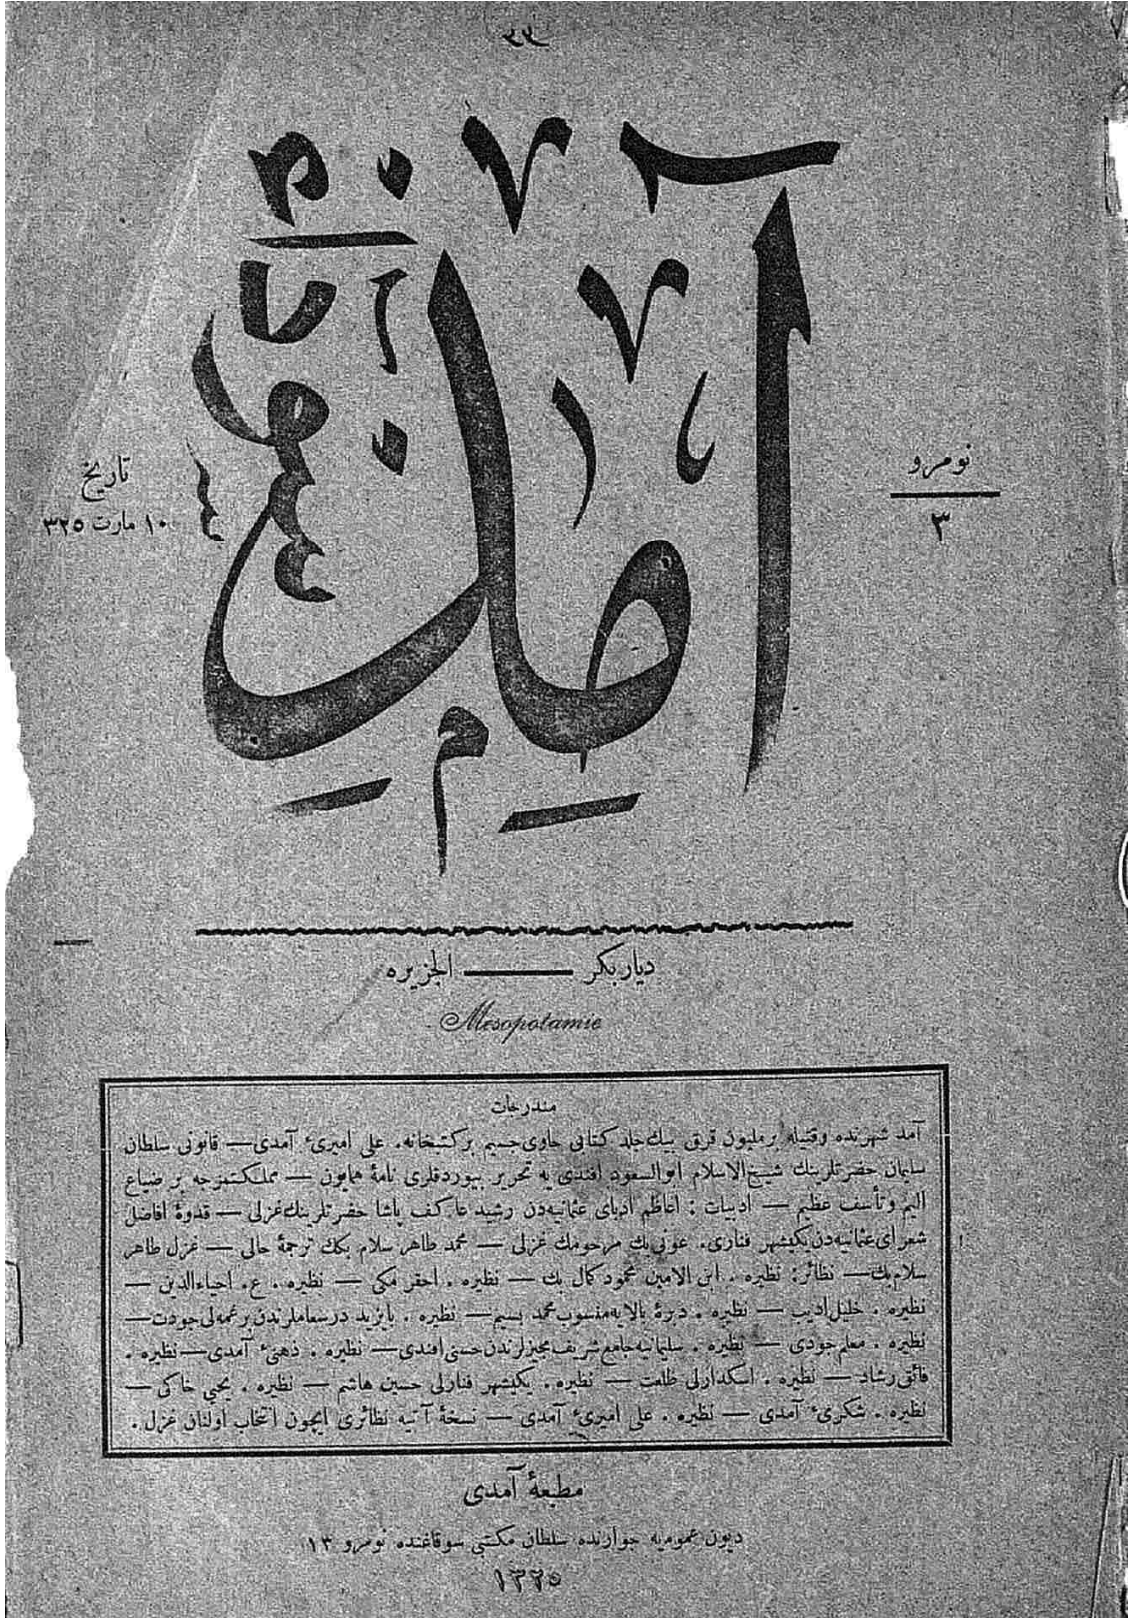 آمد
نومرو
٣
تاريخ
١٠ مارت ٣٢٥
دياربكر — الجزيره
Mesopotamie
مندرجات
آمد شهرنده وقتيله بر مليون قرق بيك جلد كتابى حاوى جسيم بر كتبخانه. على اميرىٔ آمدى — قانونى سلطان
سليمان حضرتلرينك شيخ الاسلام ابوالسعود افندى يه تحرير بيوردقلرى نامهٔ همايون — مملكتمزجه بر ضياع
اليم و تأسف عظيم — ادبيات : اعاظم ادباى عثمانيه‌دن رشيد عاكف پاشا حضرتلرينك غزلى — قدوهٔ افاضل
شعراى عثمانيه‌دن يكيشهر فنارى. عونى بك مرحومك غزلى — محمد طاهر سلام بكك ترجمهٔ حالى — غزل طاهر
سلام بك — نظائر: نظيره . ابن الامين محمود كمال بك — نظيره . احقر مكى — نظيره . ع. احياءالدين —
نظيره . خليل اديب — نظيره . دبرهٔ بالايه منسوب محمد بسيم — نظيره . بايزيد درسعاملرندن برغمه‌لى جودت —
نظيره . معلم جودى — نظيره . سليمانيه جامع شريف مجيزلرندن حسنى افندى — نظيره . ذهنىٔ آمدى — نظيره .
فائق رشاد — نظيره . اسكدارلى طلعت — نظيره . يكيشهر فنارلى حسين هاشم — نظيره . يحيى خاكى —
نظيره . شكرىٔ آمدى — نظيره . على اميرىٔ آمدى — نسخهٔ آتيه نظائرى ايچون انتخاب اولنان غزل .
مطبعهٔ آمدى
ديون عموميه جوارنده سلطان مكتبى سوقاغنده نومرو ١٣
١٣٢٥